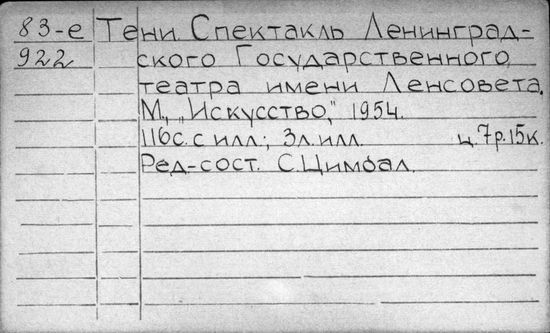 83-е Тени. Спектакль Ленинград-
922 ского Государственного
театра имени Ленсовета.
М., „Искусство," 1954.
116с. с илл.; 3л. илл. ц. 7р. 15к.
Ред-сост. С. Цимбал.